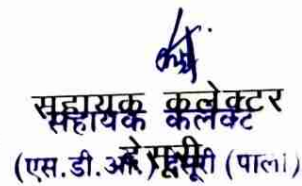 सहायक कलेक्टर
सहायक कलेक्ट
देसूरी
(एस.डी.ओ.) देसूरी (पाली)